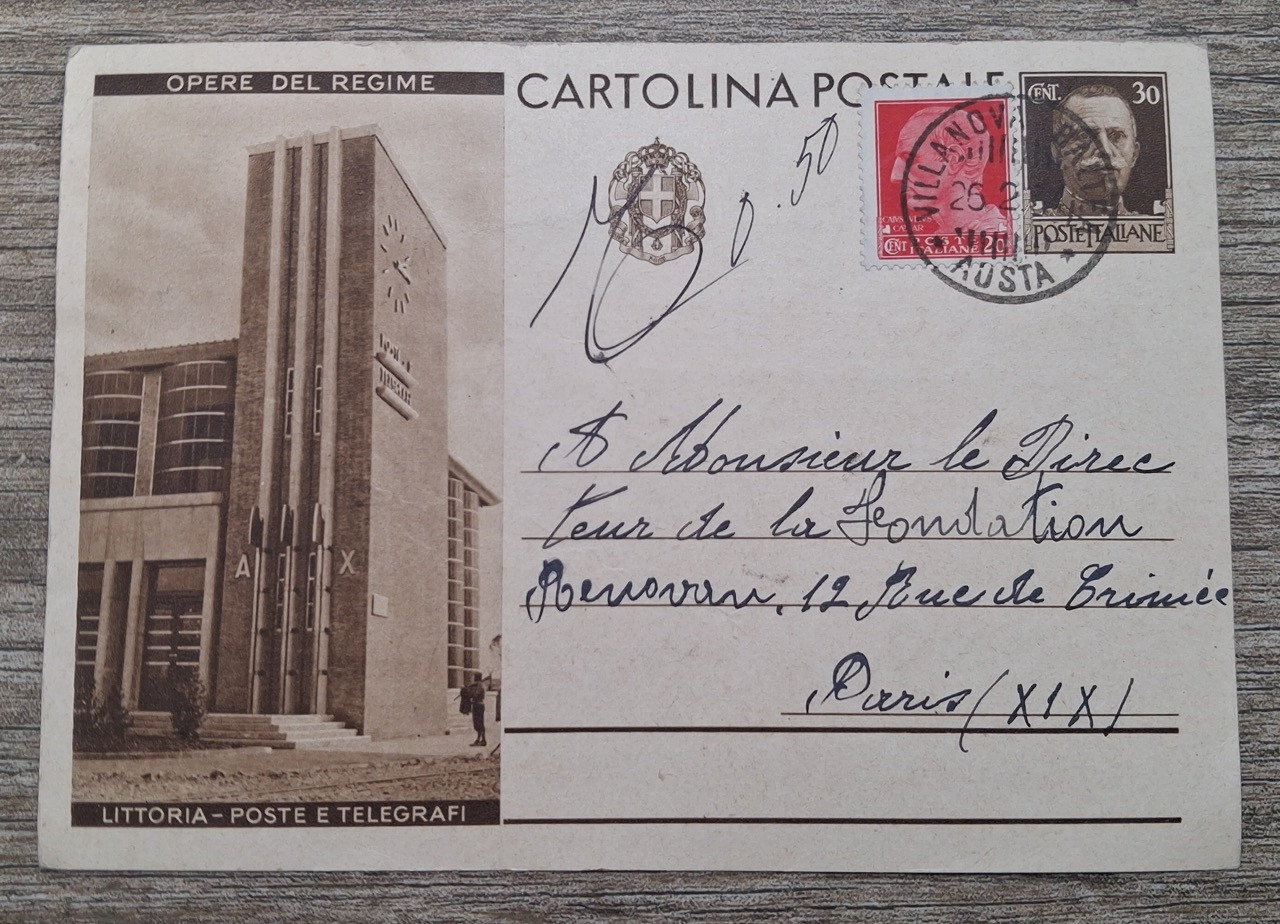 OPERE DEL REGIME
CARTOLINA POSTALE
CENT. 30
POSTE ITALIANE
CAIVS IVLIVS
CAESAR
CENT POSTE
ITALIANE 20
VILLANOVA
26.2
AOSTA
0.50
A X
A Monsieur le Direc
teur de la Fondation
Renovan, 12 Rue de Crimée
Paris (XIX)
LITTORIA - POSTE E TELEGRAFI